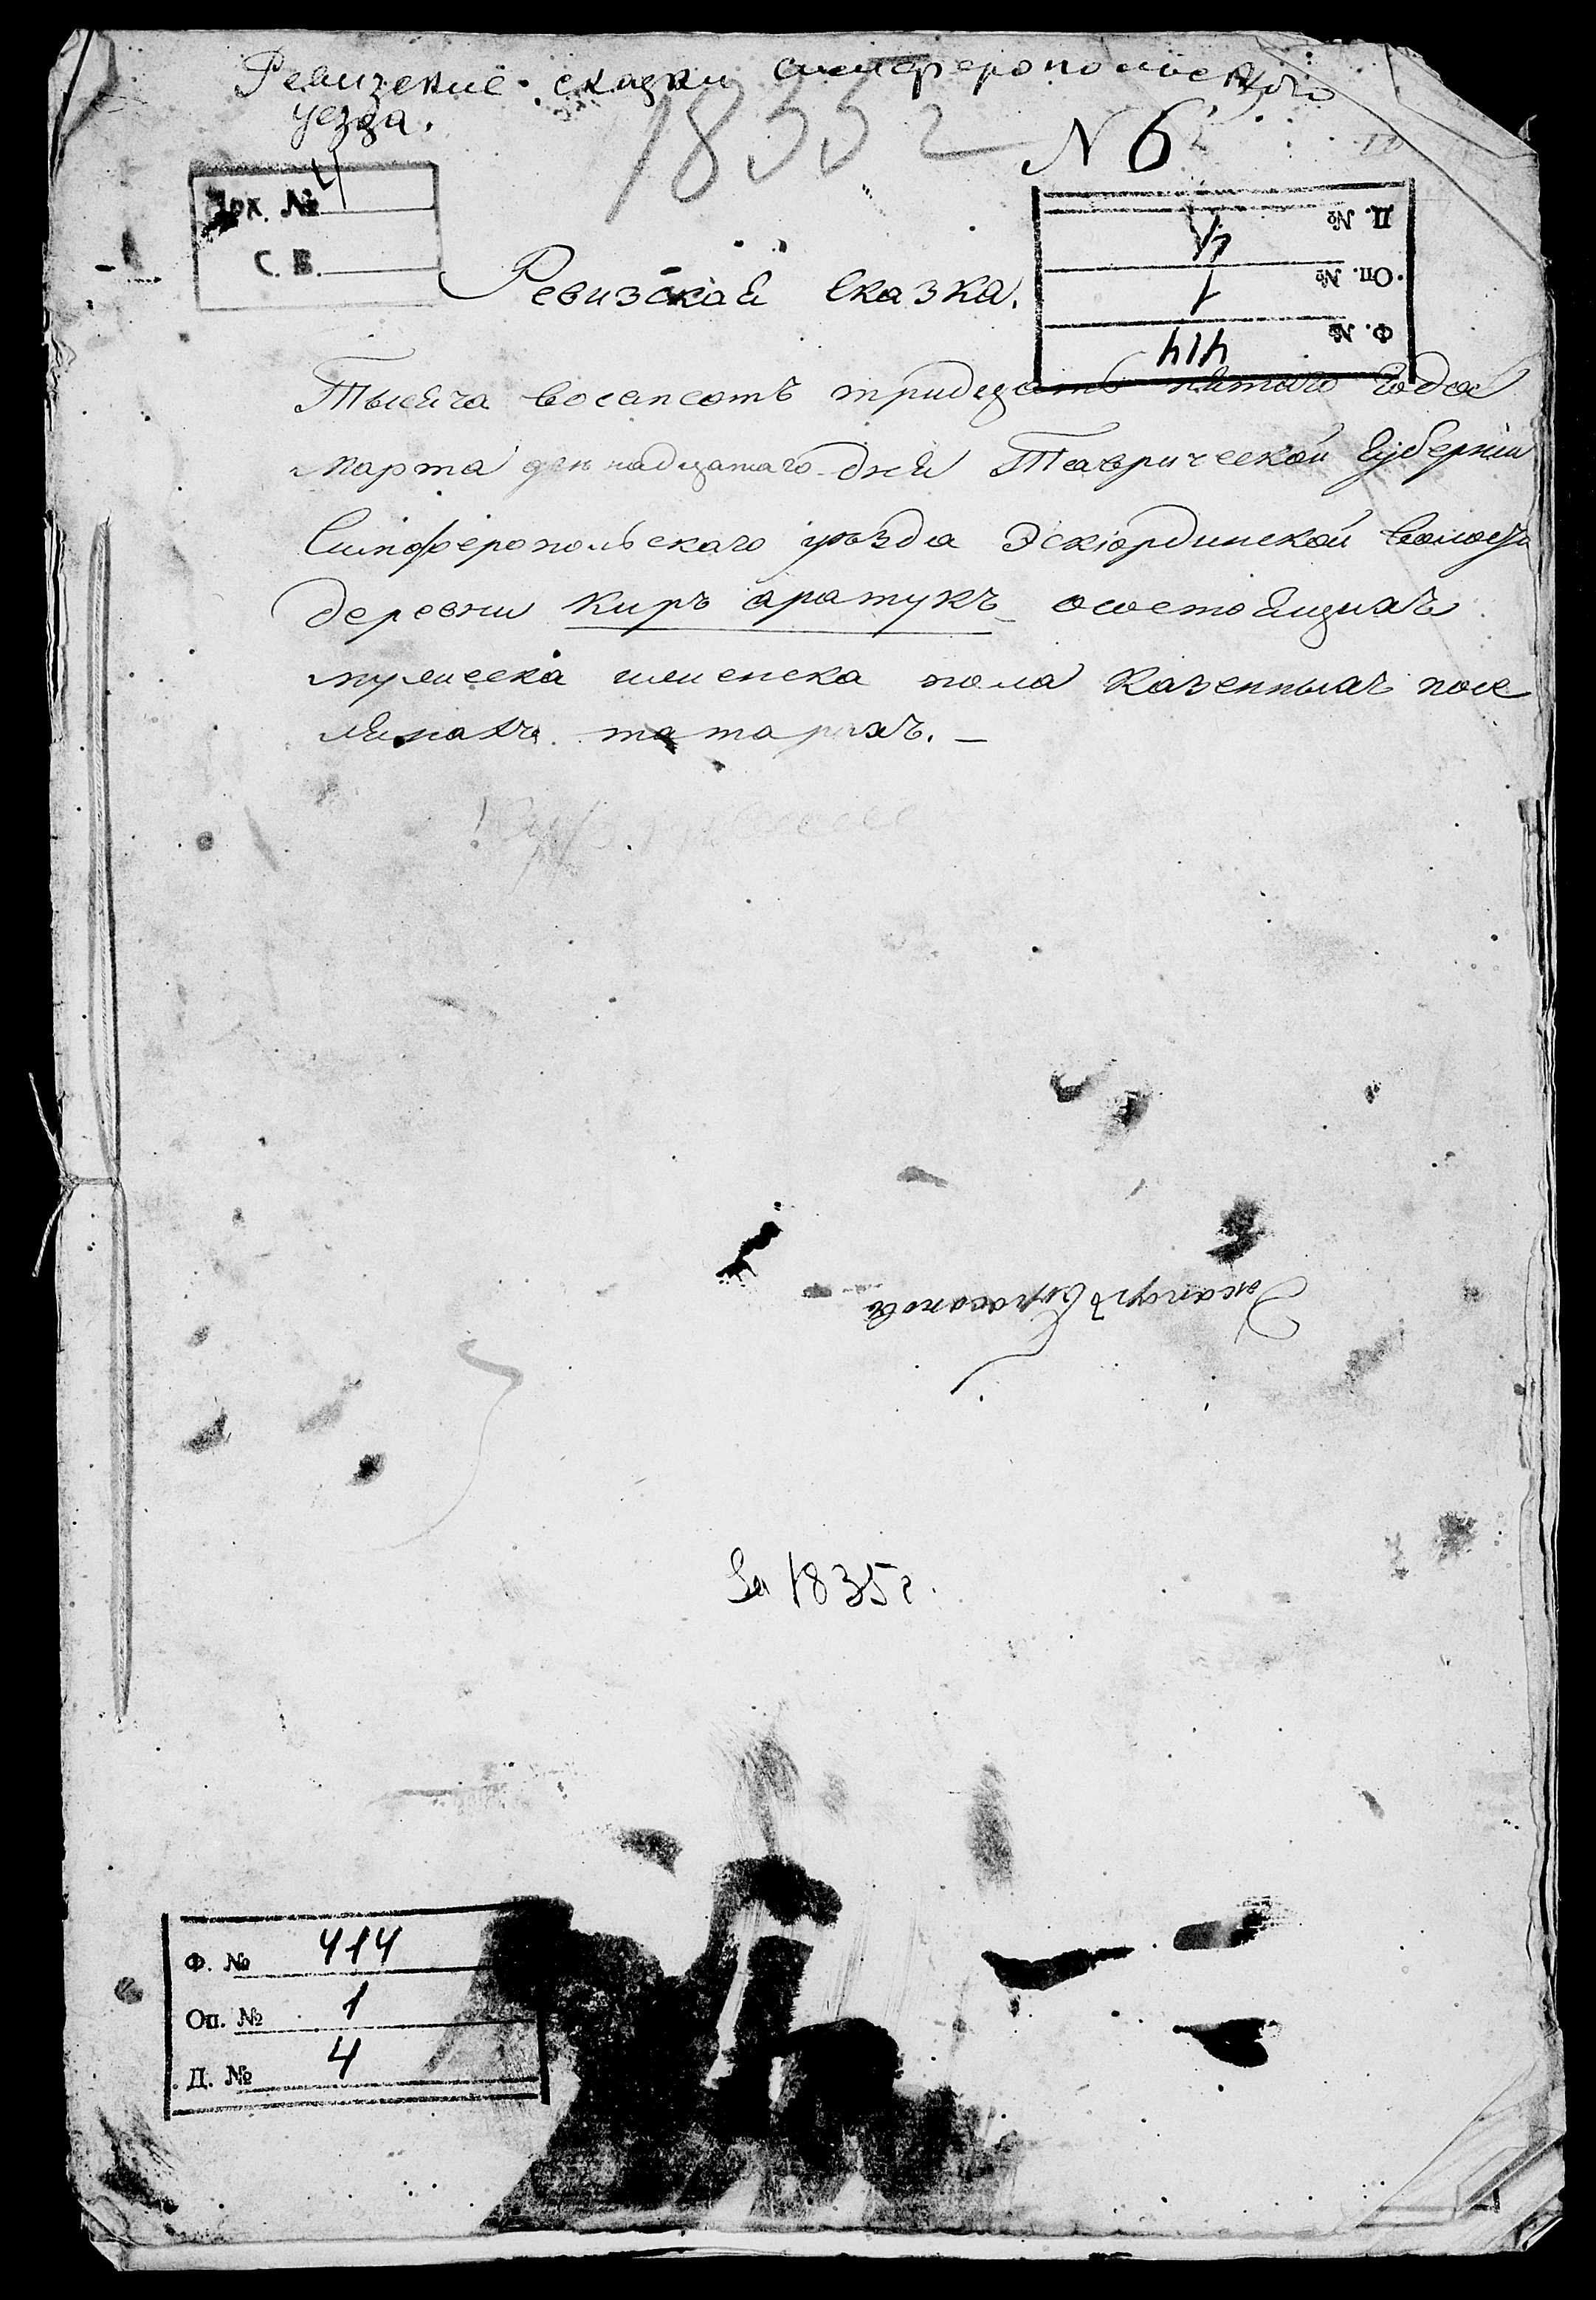 Ревизские сказки симферопольского
уезда.
1835 г
N 6
Арх. № 4
С. В.
Д. № 4
Оп. № 1
Ф. № 414
Ревизская Сказка.
Тысяча восемсотъ тридцать пятаго Года
Марта дня Таврической Губернии
Симферопольскаго уѣзда Эскіординской Волости
деревни Киръ аратукъ о состоящихъ
мужеска и женска пола Казенныхъ посе
лянахъ татарахъ. —
За 1835 г.
Ф. № 414
Оп. № 1
Д. № 4